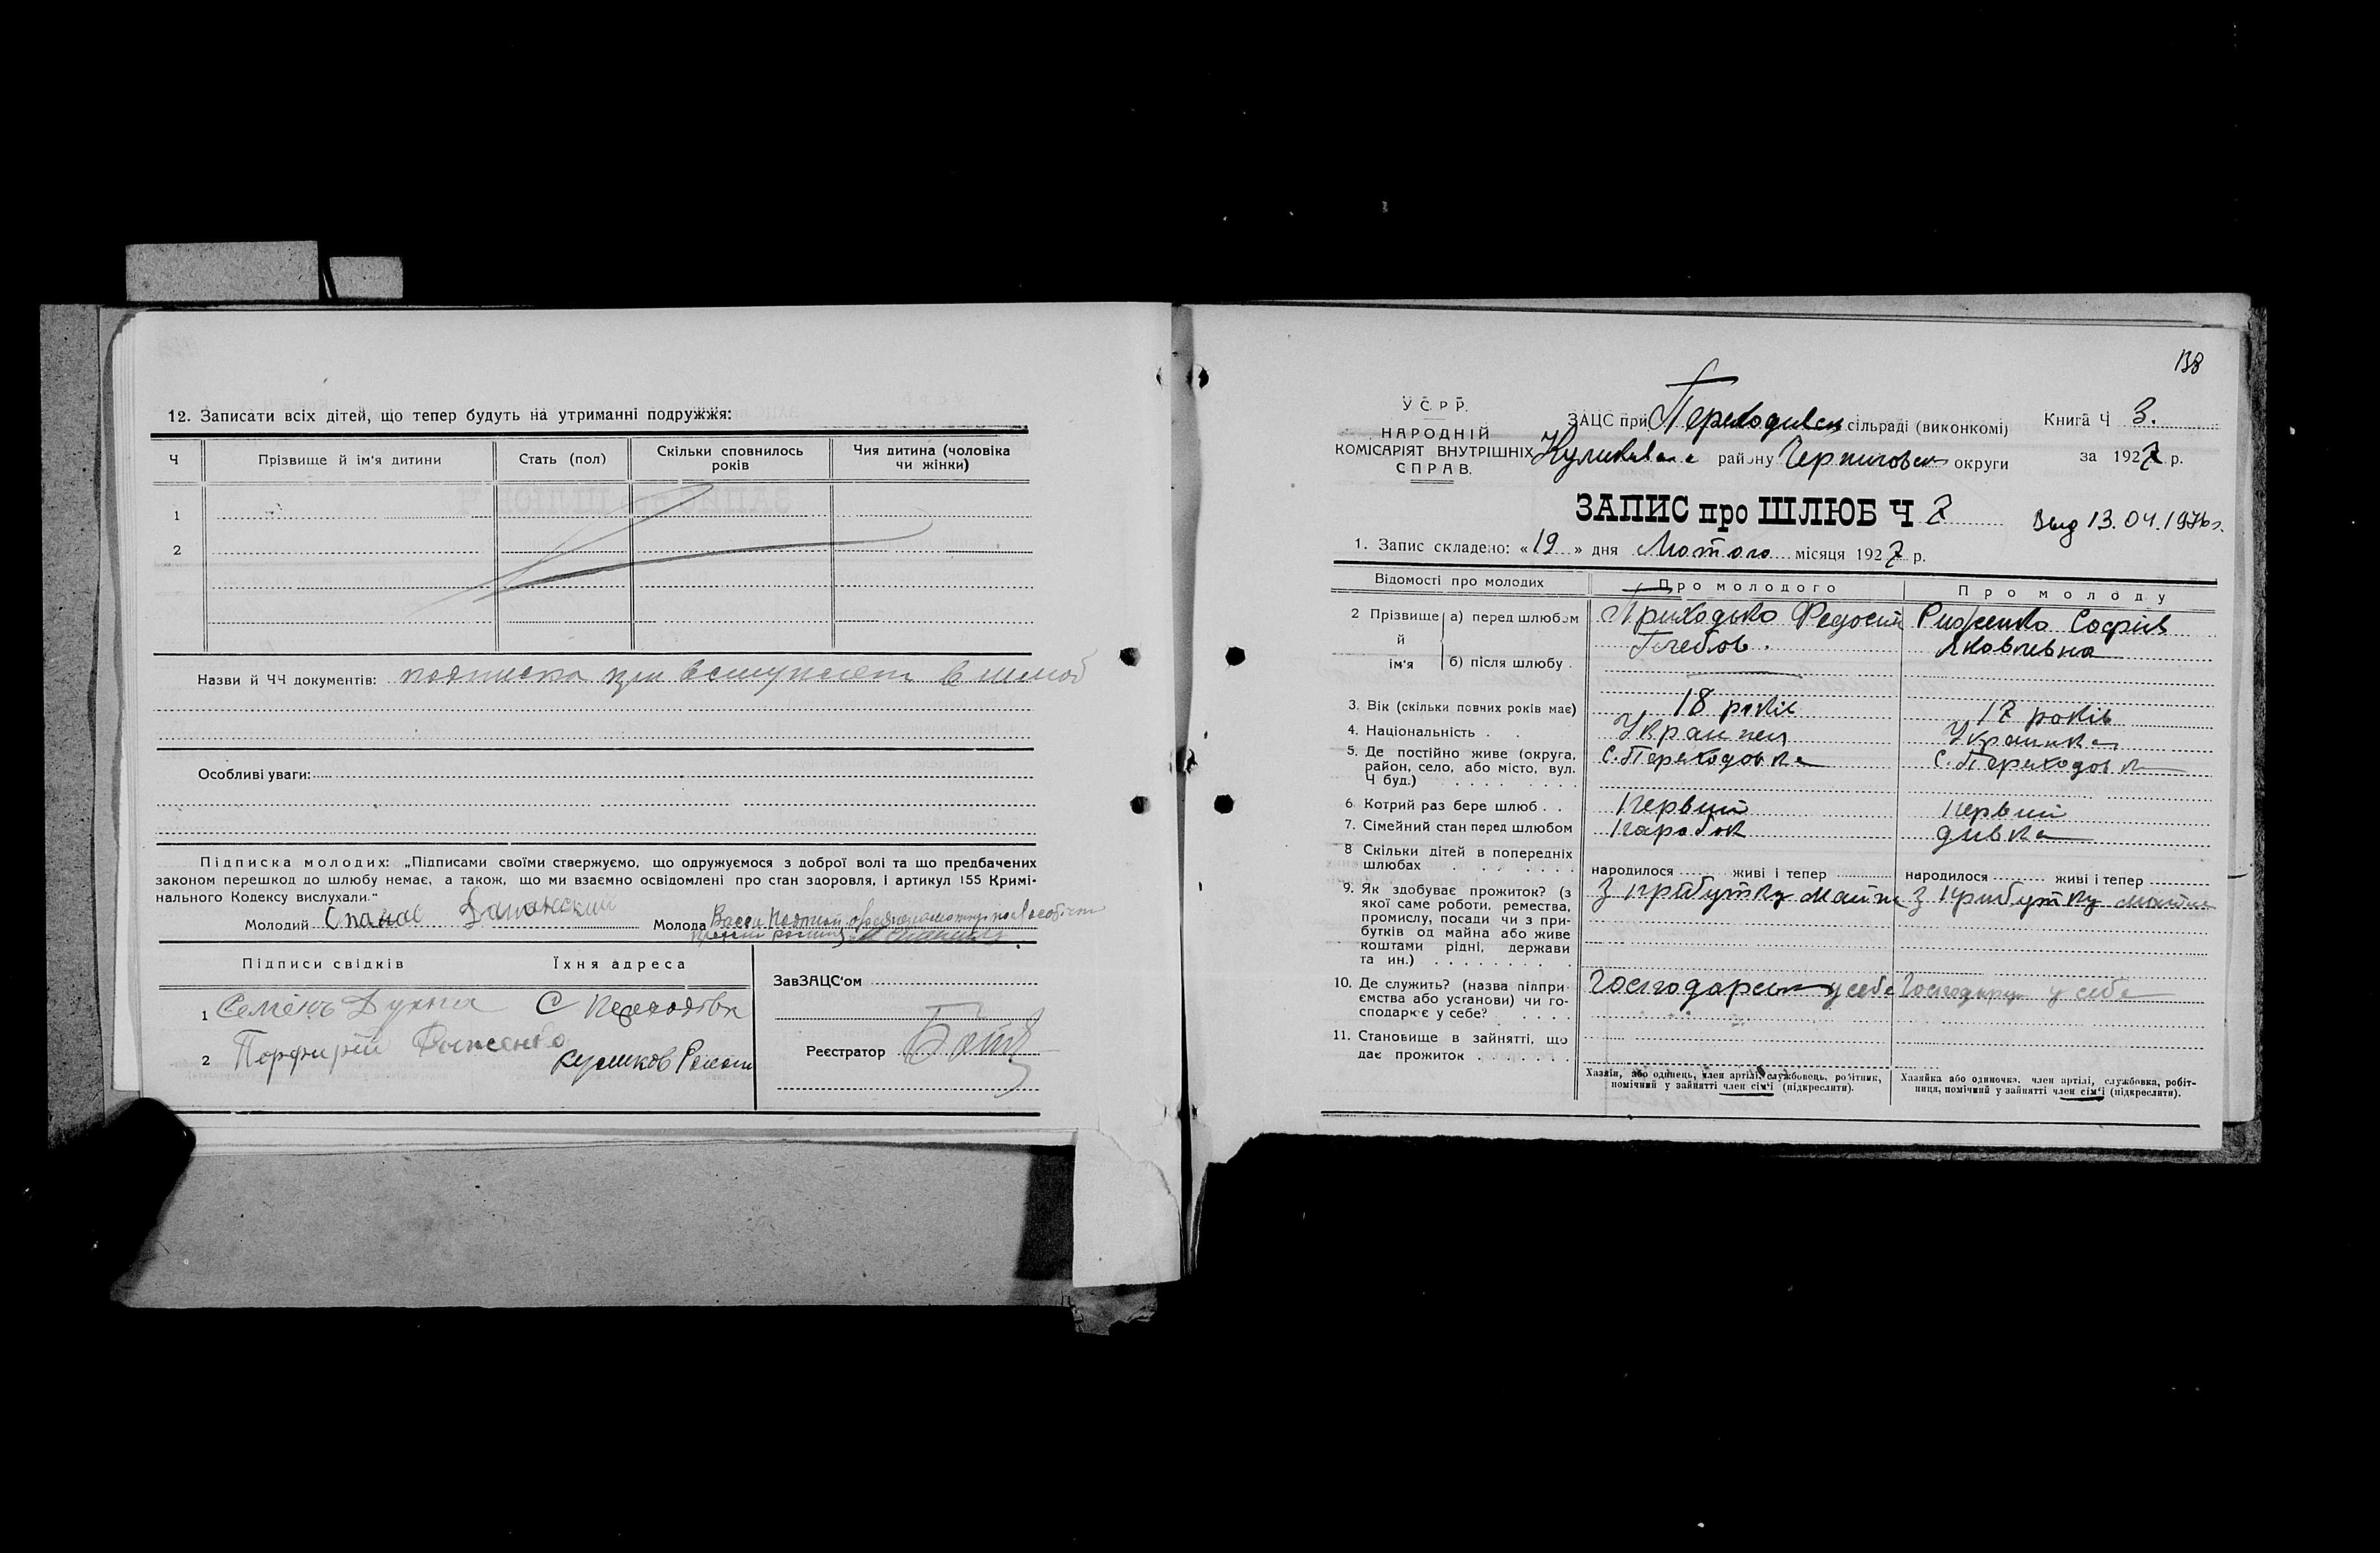 12. Записати всіх дітей, що тепер будуть на утриманні подружжя:
Ч
Прізвище й ім'я дитини
Стать (пол)
Скільки сповнилось
років
Чия дитина (чоловіка
чи жінки)
1
2
Назви й ЧЧ документів: подписка при вступлении в шлюб
Особливі уваги:
Підписка молодих: „Підписами своїми ствержуємо, що одружуємося з доброї волі та що предбачених
законом перешкод до шлюбу немає, а також, що ми взаємно освідомлені про стан здоровля, і артикул 155 Кримі-
нального Кодексу вислухали."
Молодий
Молода
Підписи свідків
Їхня адреса
1 Семенъ
2 Порфирій
ЗавЗАЦС'ом
Реєстратор
138
У С Р Р.
НАРОДНІЙ
КОМІСАРІЯТ ВНУТРІШНІХ
СПРАВ.
ЗАЦС при Переходівск сільраді (виконкомі)
Куликівська району Черниговск округи
Книга Ч 3.
за 1927 р.
ЗАПИС про ШЛЮБ Ч 7
Выд 13.04.1976 г.
1. Запис складено: «19» дня Лютого місяця 1927 р.
Відомості про молодих
Про молодого
Про молоду
2 Прізвище й ім'я
а) перед шлюбом
Приходько Федосій
Глебов.
Риженко Софія
Яковлевна
б) після шлюбу .
3. Вік (скільки повних років має)
18 років
17 років
4. Національність . .
Українец
Українка
5. Де постійно живе (округа,
район, село, або місто, вул.
Ч буд.)
С. Переходовка
С. Переходовк
6. Котрий раз бере шлюб . .
первий
первий
7. Сімейний стан перед шлюбом
паробок
дивка
8 Скільки дітей в попередніх
шлюбах
народилося живі і тепер
народилося живі і тепер
9. Як здобуває прожиток? (з
якої саме роботи, ремества,
промислу, посади чи з при-
бутків од майна або живе
коштами рідні, держави
та ин.)
З прибутку майна
З прибутку майна
10. Де служить? (назва підпри-
ємства або установи) чи го-
сподарює у себе?
Господарст у себе
Господарст у себе
11. Становище в зайнятті, що
дає прожиток
Хазяїн, або одинець, член артілі, службовець, робітник,
помічний у зайнятті член сім'ї (підкреслити).
Хазяйка або одиночка, член артілі, службовка, робіт-
ниця, помічний у зайнятті член сім'ї (підкреслити).